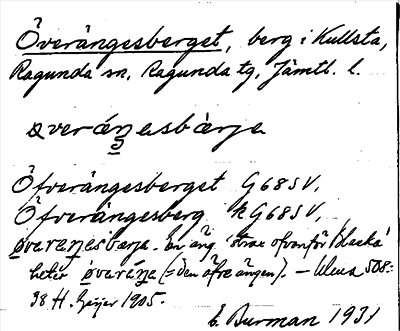 Överängesberget, berg i Kullsta,
Ragunda sn, Ragunda tg, Jämtl. l.
øveráŋesbàrja
Öfverängesberget G 68 SV,
Öfverängesberg k G 68 SV,
øveráŋesbærja. En äng 'strax ofvanför Blacka'
heter øveráŋa (= den öfre ängen). – Ulma 508:
38 H. Geijer 1905.
E. Burman 1931